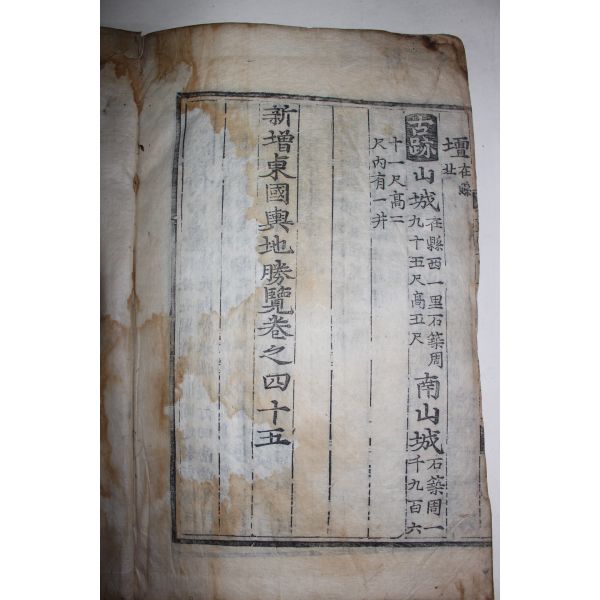 壇在縣北
古跡山城在縣西一里石築周九十五尺高五尺南山城石築周一千九百六
十一尺高二尺內有一井
新增東國輿地勝覽卷之四十五